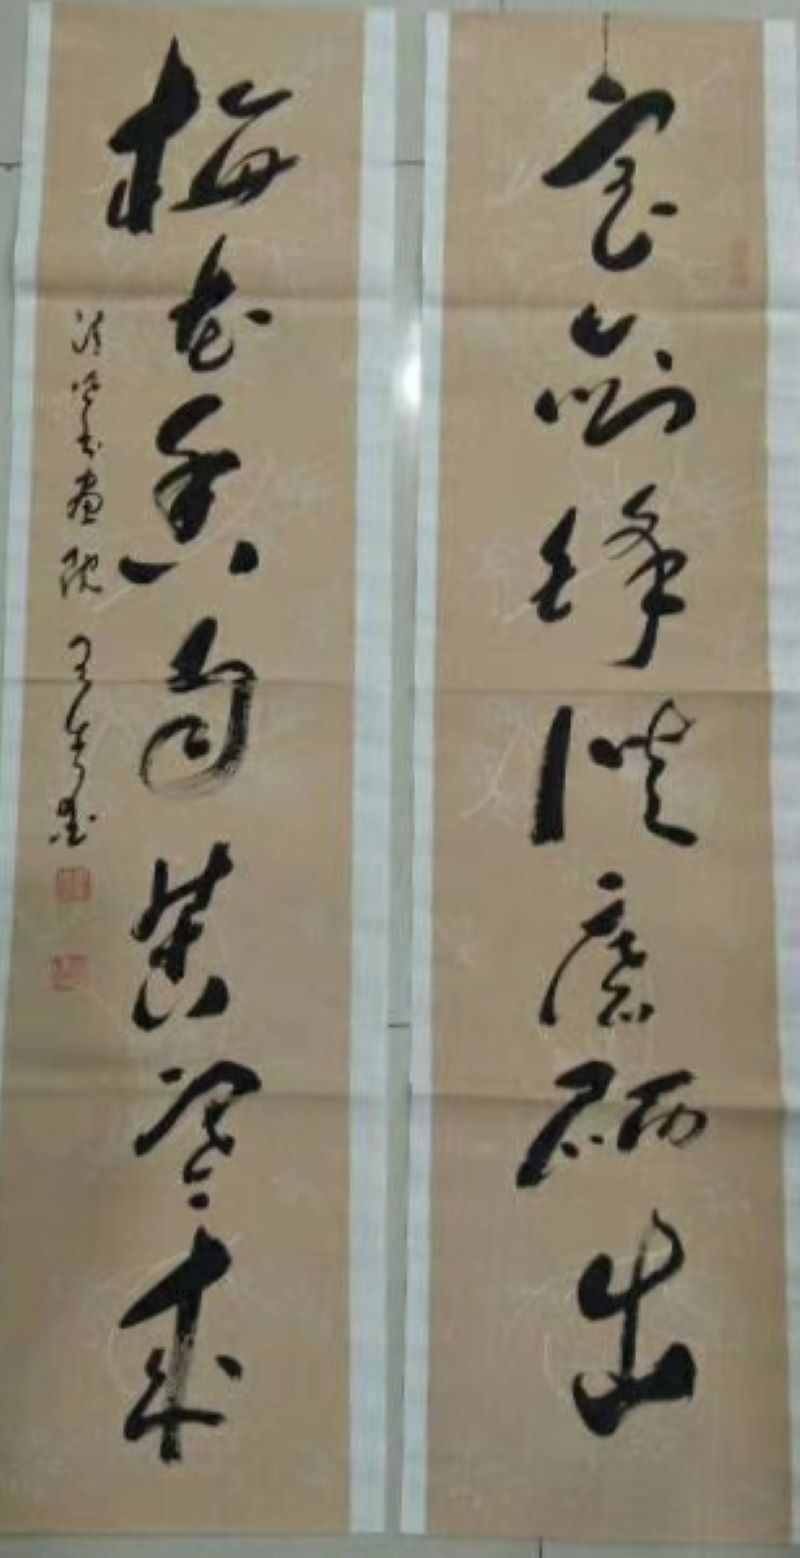 宝剑锋从磨砺出
梅花香自苦寒来
书画院 王